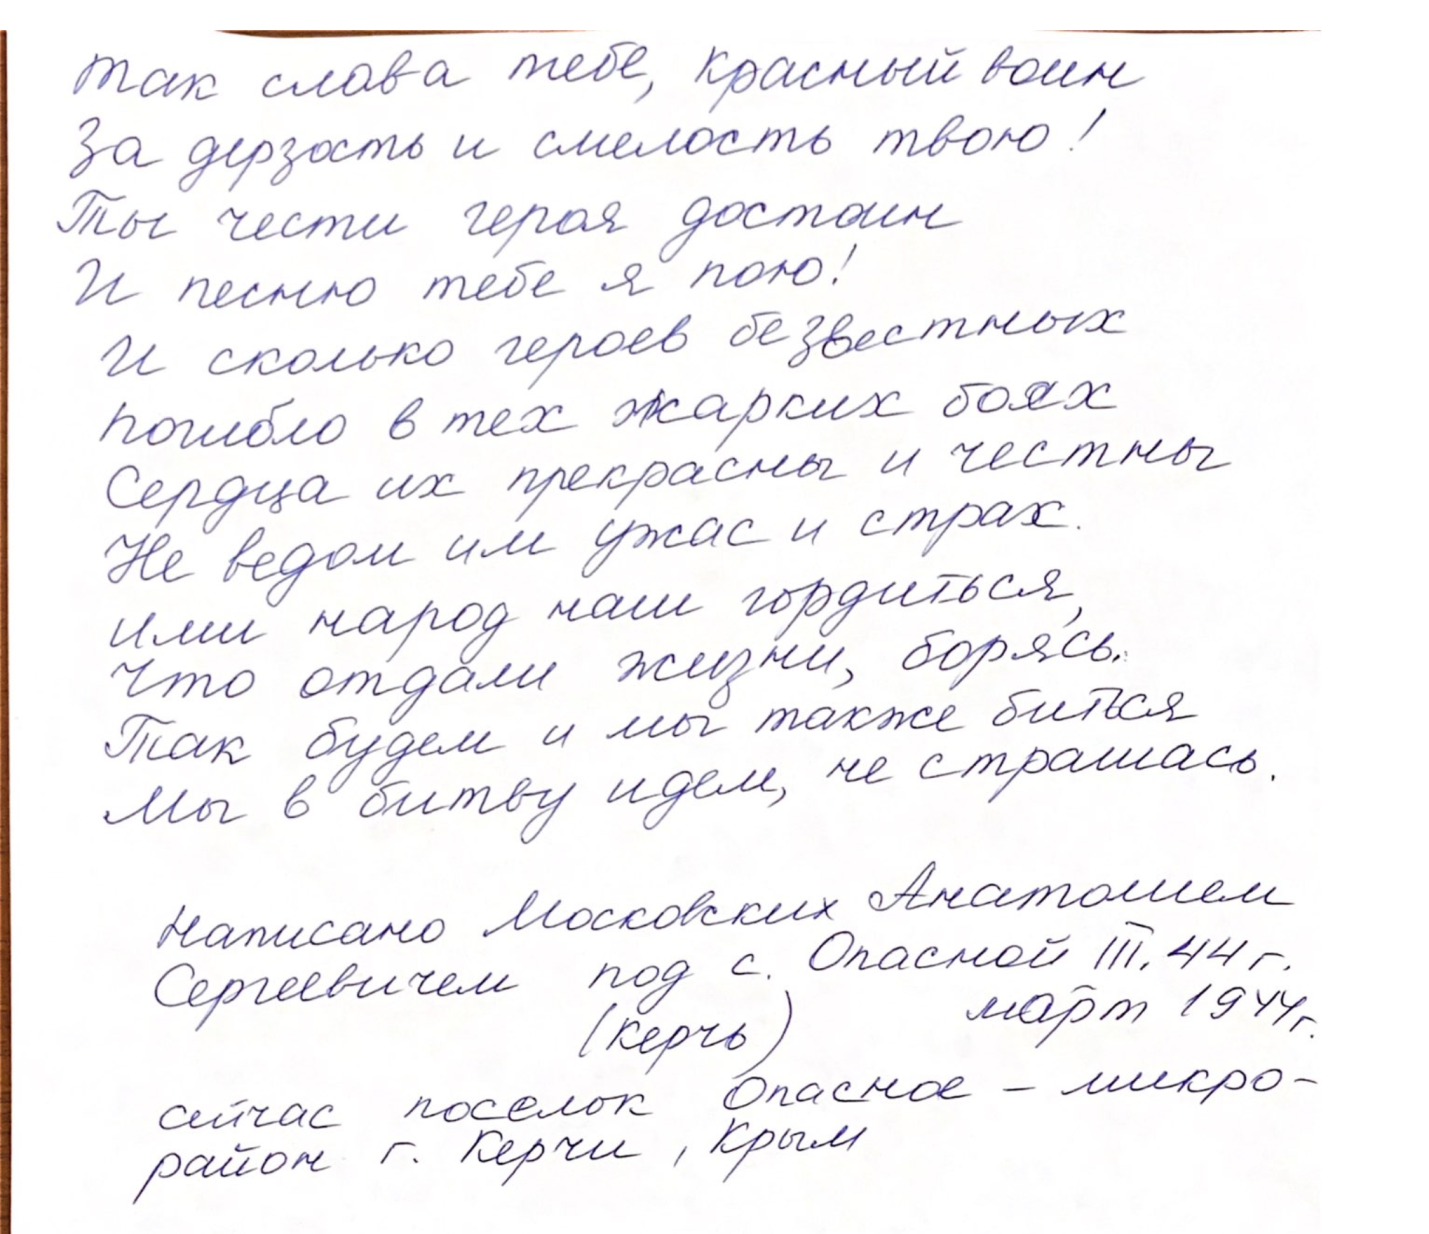 Так слава тебе, красный воин
За дерзость и смелость твою!
Ты чести героя достоин
И песню тебе я пою!
И сколько героев безвестных
Погибло в тех жарких боях
Сердца их прекрасны и честны
Не ведом им ужас и страх.
Ими народ наш гордиться,
Что отдали жизни, борясь.
Так будем и мы также биться
Мы в битву идем, не страшась.
Написано Московских Анатолием
Сергеевичем под с. Опасной III. 44 г.
(Керчь) март 1944 г.
сейчас поселок Опасное – микро-
район г. Керчи, Крым